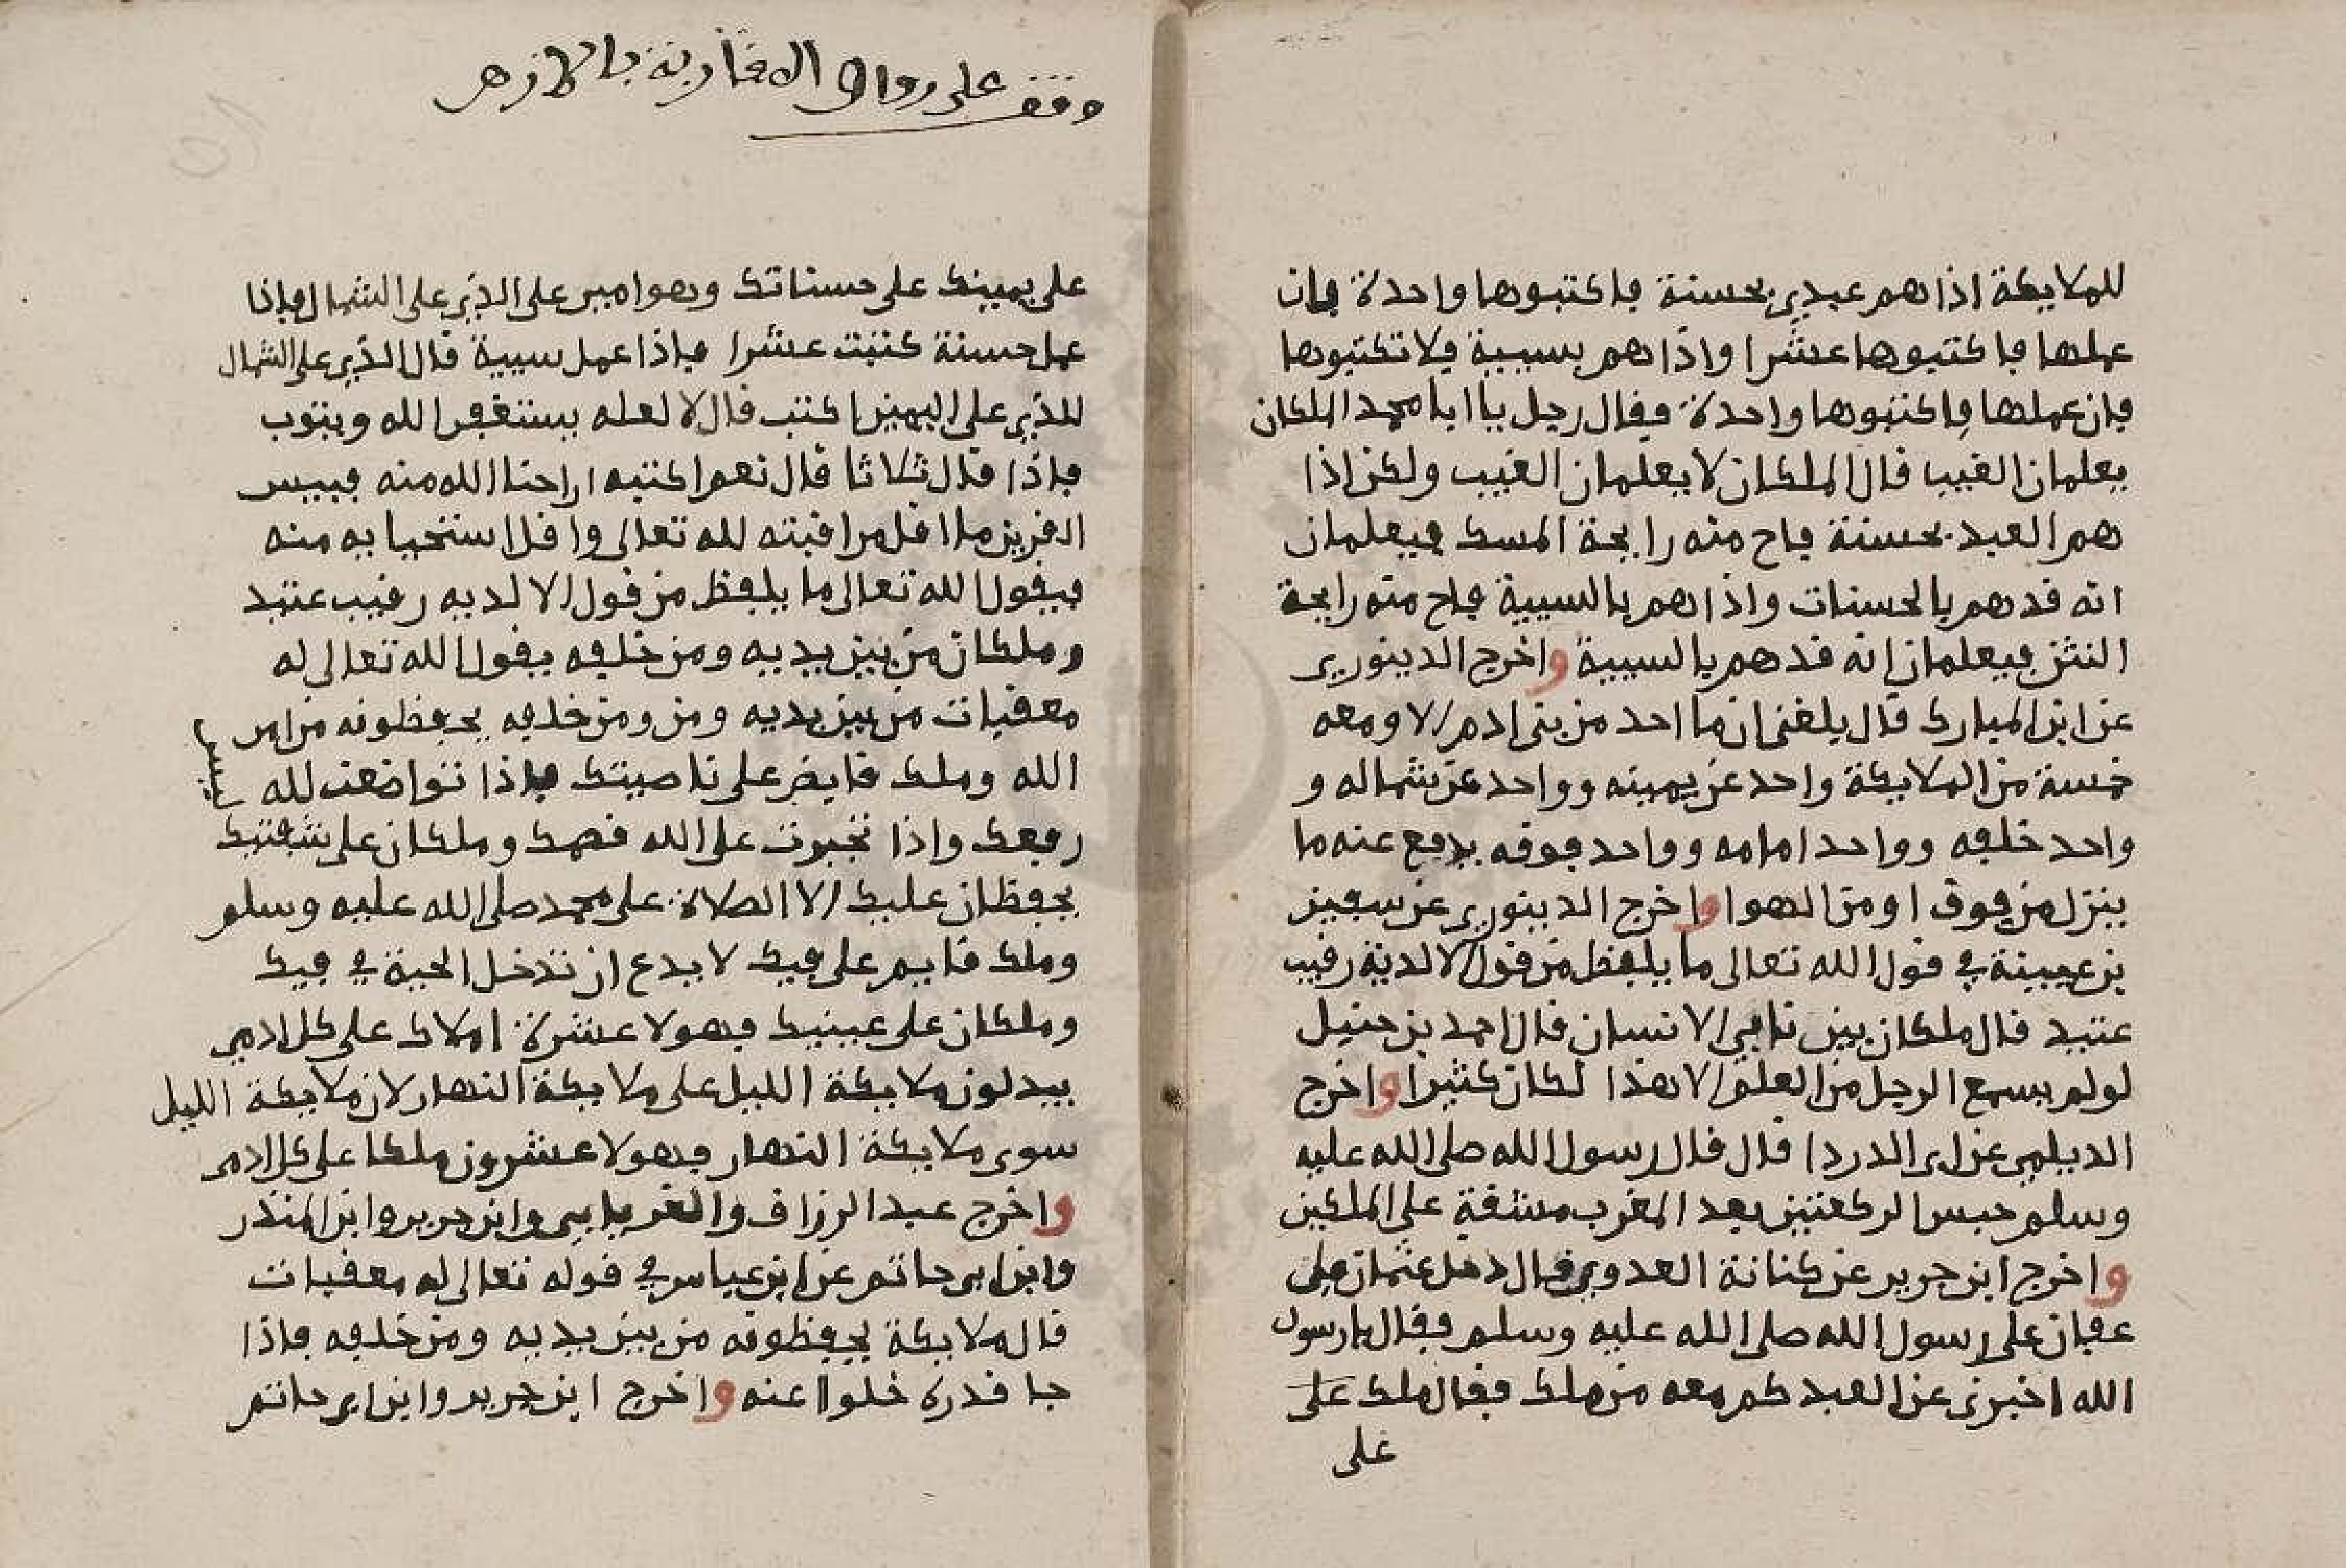 للملايكة اذا هم عبدي بحسنة فاكتبوها واحدة فان
عملها فاكتبوها عشرا واذا هم بسيية فلا تكتبوها
فان عملها فاكتبوها واحدة فقال رجل يا ابا محمد الملكان
يعلمان الغيب قال الملكان لا يعلمان الغيب ولكن اذا
هم العبد بحسنة فاح منه رايحة المسك فيعلمان
انه قد هم بالحسنات واذا هم بالسيية فاح منه رايحة
النتن فيعلمان انه قد هم بالسيية واخرج الدينوري
عن ابن المبارك قال بلغني ان ما احد من بني ادم الا ومعه
خمسة من الملايكة واحد عن يمينه وواحد عن شماله و
واحد خلفه وواحد امامه وواحد فوقه يدفع عنه ما
ينزل من فوق او من الهوا واخرج الدينوري عن سفين
بن عيينة في قول الله تعالى ما يلفظ من قول الا لديه رقيب
عتيد قال ملكان بين نابي الانسان قال احمد بن حنبل
لو لم يسمع الرجل من العلم الا هذا لكان كثيرا واخرج
الديلمي عن ابي الدردا قال قال رسول الله صلى الله عليه
وسلم حبس الركعتين بعد المغرب مشقة على الملكين
واخرج ابن جرير عن كنانة العدوي قال دخل عثمان
عفان على رسول الله صلى الله عليه وسلم فقال يا رسول
الله اخبرني عن العبد كم معه من ملك فقال ملك على
على
وقف على رواق المغاربة بالازهر
على يمينك على حسناتك وهو امير على الذي على الشمال فاذا
عمل حسنة كتبت عشرا فاذا عمل سيية قال الذي على الشمال
للذي على اليمين اكتب قال لا لعله يستغفر الله ويتوب
فاذا قال ثلاثا قال نعم اكتبه اراحنا الله منه فبيس
القرين ما اقل مراقبته لله تعالى واقل استحيايه منه
فيقول الله تعالى ما يلفظ من قول الا لديه رقيب عتيد
وملكان من بين يديه ومن خلفه يقول الله تعالى له
معقبات من بين يديه ومن ومن خلفه يحفظونه من امر
الله وملك قابض على ناصيتك فاذا تواضعت لله
رفعك واذا تجبرت على الله قصمك وملكان على شفتيك
يحفظان عليك الا الصلاة على محمد صلى الله عليه وسلم
وملك قايم على فيك لا يدع ان تدخل الحية في فيك
وملكان على عينيك فهولا عشرة املاك على كل ادمي
يبدلون ملايكة الليل على ملايكة النهار لان ملايكة الليل
سوى ملايكة النهار فهولا عشرون ملكا على كل ادمي
واخرج عبد الرزاق والفريابي وابن جرير وابن المنذر
وابن ابي حاتم عن ابن عباس في قوله تعالى له معقبات
قال ملايكة يحفظونه من بين يديه ومن خلفه فاذا
جا قدره خلوا عنه واخرج ابن جرير وابن ابي حاتم